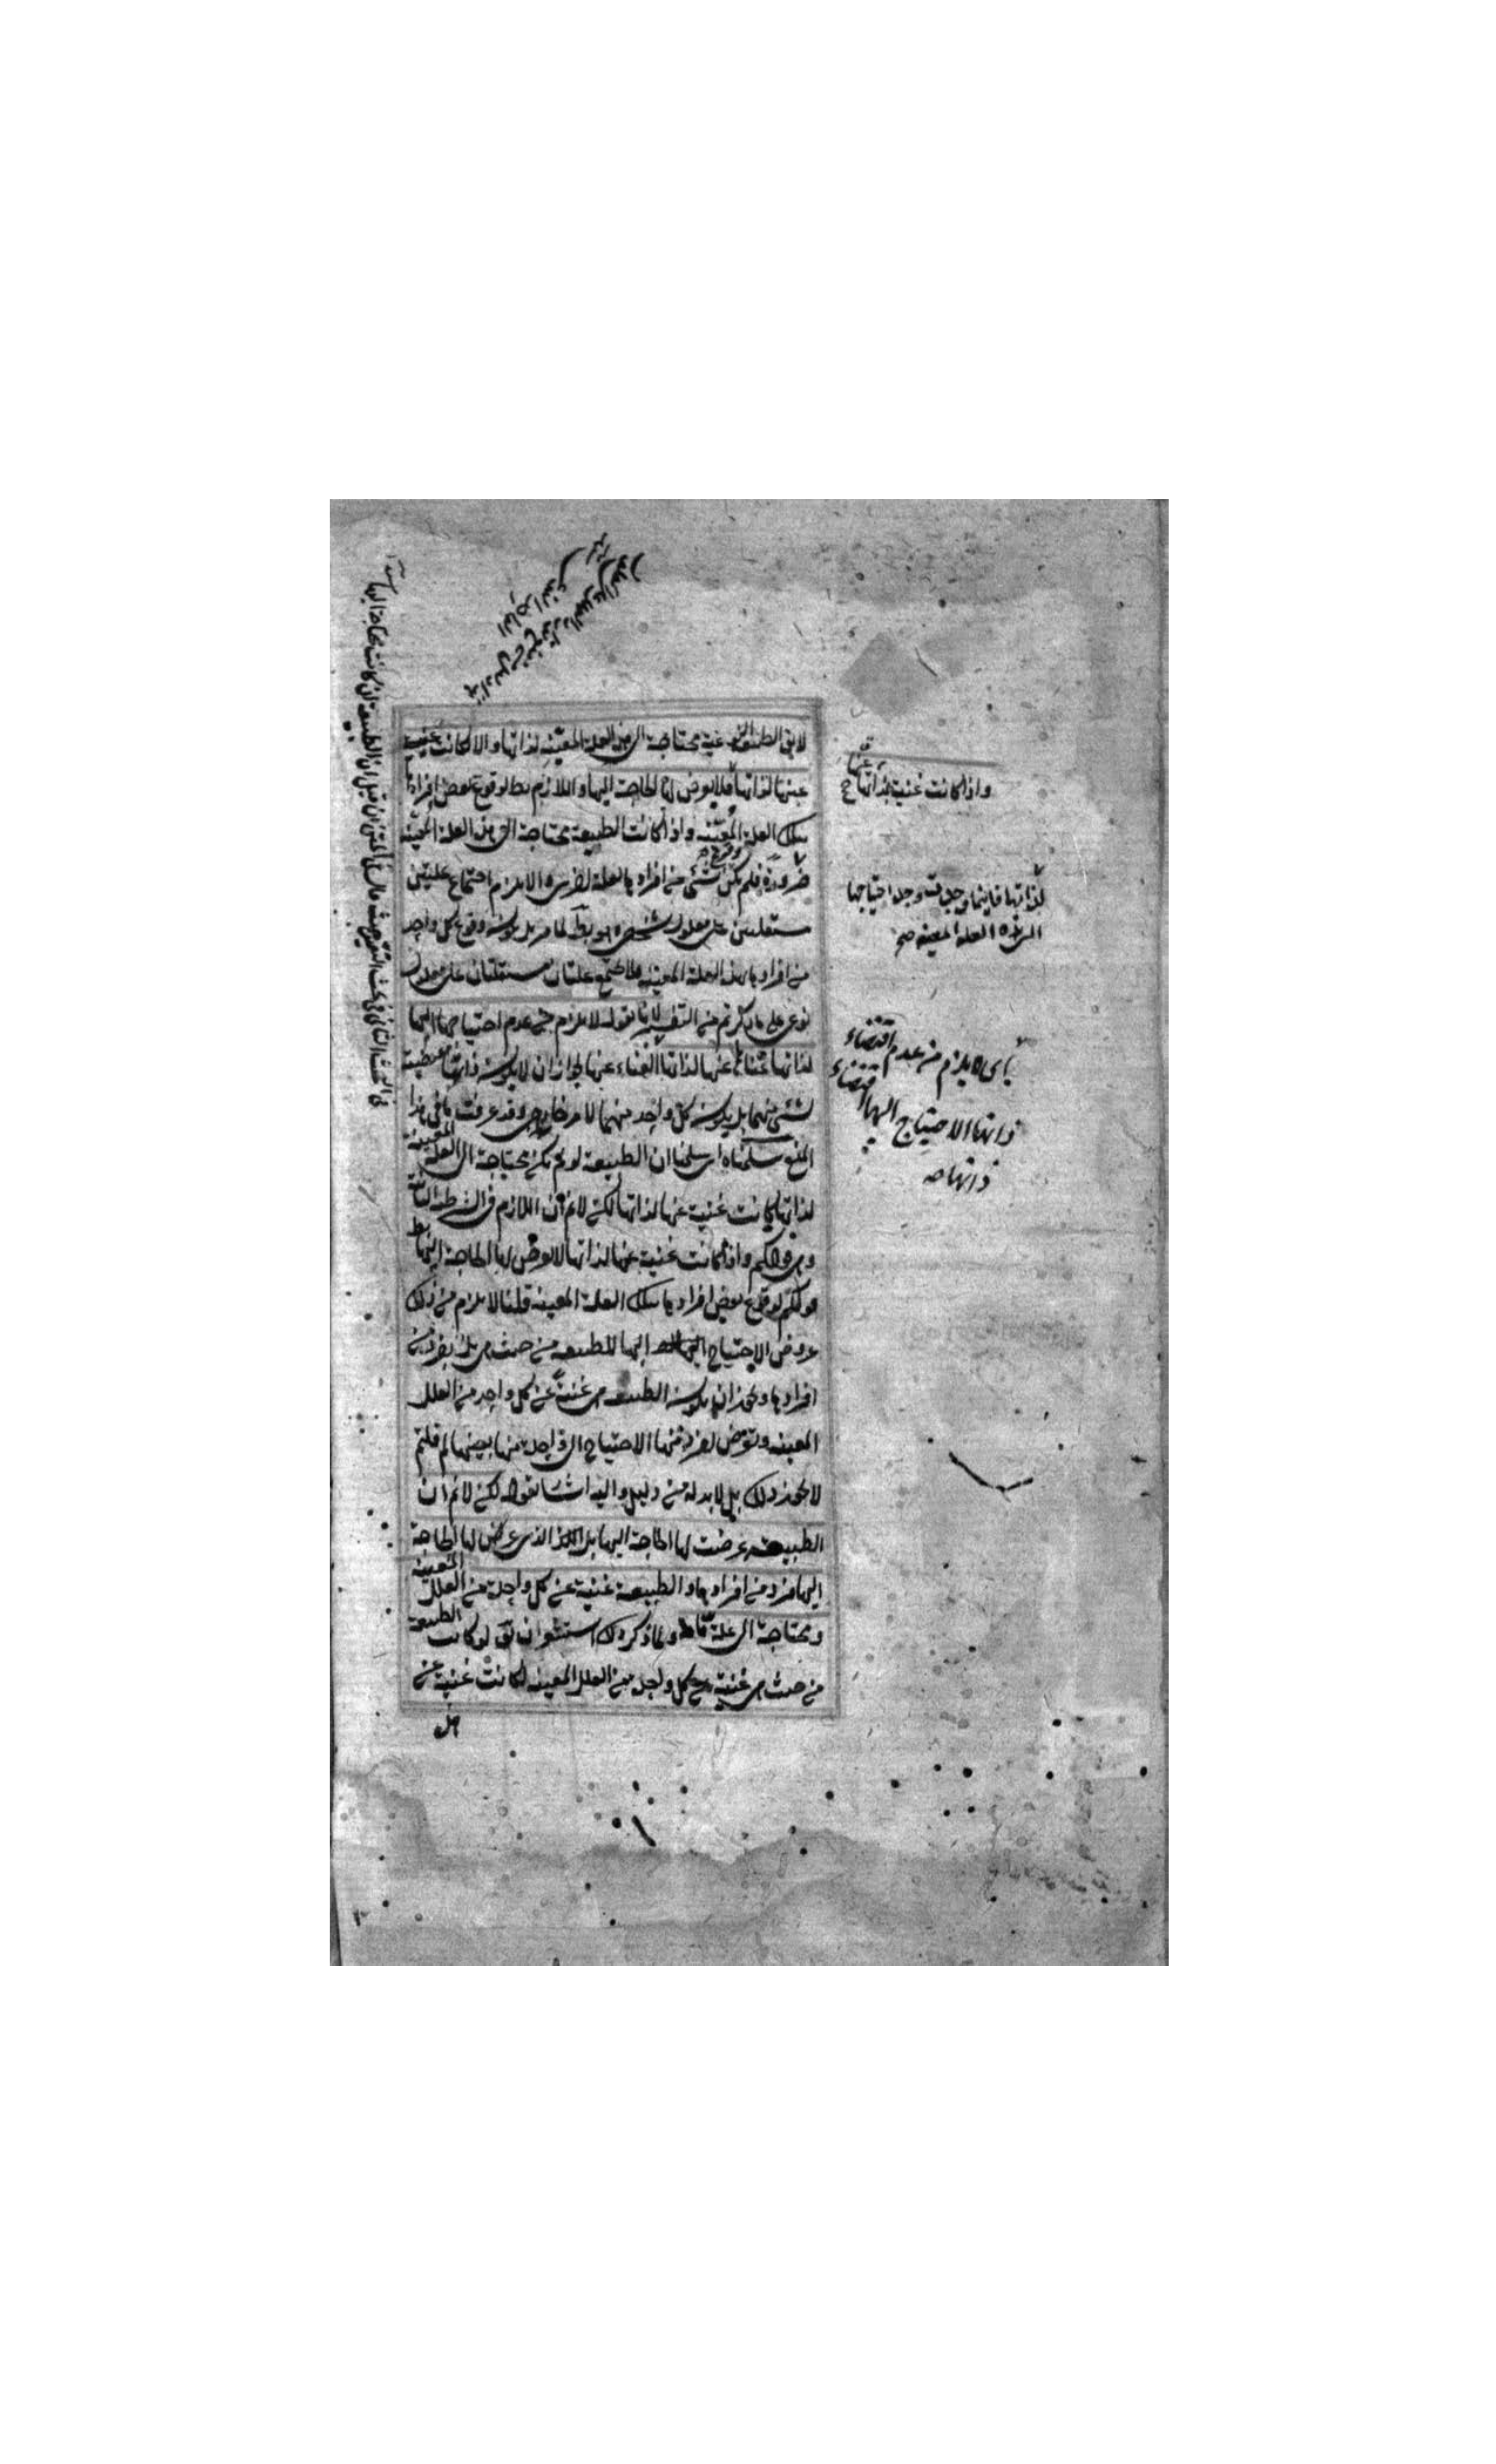 لا يق الطبيعة النوعية محتاجة الى هذه العلة المعينة لذاتها والا لكانت غنية
عنها لذاتها فلا يعرض لها الحاجة اليها واللازم بط لوقوع بعض افرادها
بتلك العلة المعينة واذا كانت الطبيعة محتاجة الى هذه العلة المعينة
ضرورة فلم يكن وقوع شئ من افرادها بالعلة لاخرى والا لزم اجتماع علتين
مستقلتين على معلول شخصى وهو بط لما مر بل يكون وقوع كل واحد
من افرادها بهذه العلة المعينة فلا يجتمع علتان مستقلتان على معلول
نوعى على ما ذكرتم من التفسير لانا نقول لا يلزم من عدم احتياجها اليها
لذاتها غناها عنها لذاتها الغناء عنها لجواز ان لا يكون ذاتها مقتضية
لشئ منهما بل يكون كل واحد منهما لامر خارجى وقد عرفت ما فى هذا
المنع سلمناه اى سلمنا ان الطبيعة لو لم تكن محتاجة الى العلة المعينة
لذاتها كانت غنية عنها لذاتها لكن لانم ان اللازم فى الشرطية الثانية
وهى قولكم واذا كانت غنية عنها لذاتها لا يعرض لها الحاجة اليها بط
قولكم لوقوع بعض افرادها بتلك العلة المعينة قلنا لا يلزم من ذلك
عروض الاحتياج اليها للطبيعة من حيث هى بل لفرد من
افرادها ويجوز ان يكون الطبيعة هى غنية عن كل واحد من العلل
المعينة وتعرض لفرد منها الاحتياج الى واحدة منها بعينها لم قلتم
لا يجوز ذلك بل لا بد له من دليل واليه اشار بقوله لكن لانم ان
الطبيعة عرضت لها الحاجة اليها بل الذى عرض لها الحاجة
اليها فرد من افرادها والطبيعة غنية عن كل واحدة من العلل المعينة
ومحتاجة الى علة ما ولما ذكر ذلك استشعر ان يق لو كانت الطبيعة
من حيث هى غنية عن كل واحد من العلل المعينة لكانت غنية عن
واذا كانت غنية لذاتها عنها
لذاتها فاينما وجدت وجد احتياجها
الى هذه العلة المعينة صح
اى لا يلزم من عدم اقتضاء
ذاتها الاحتياج اليها اقتضاء
ذاتها